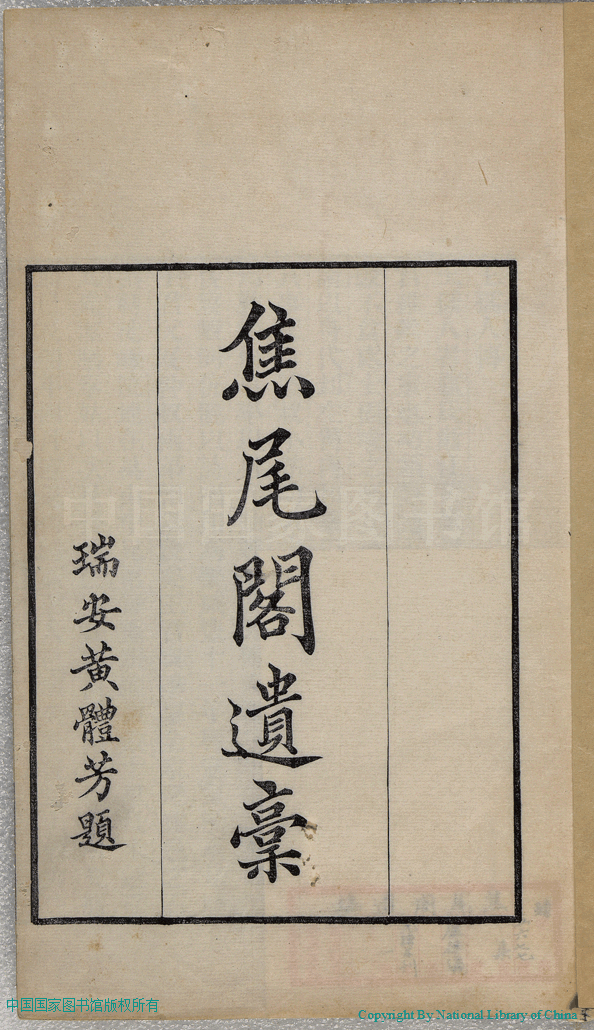 焦尾閣遺稾
瑞安黃體芳題
中国国家图书馆
中国国家图书馆版权所有
Copyright By National Library of China